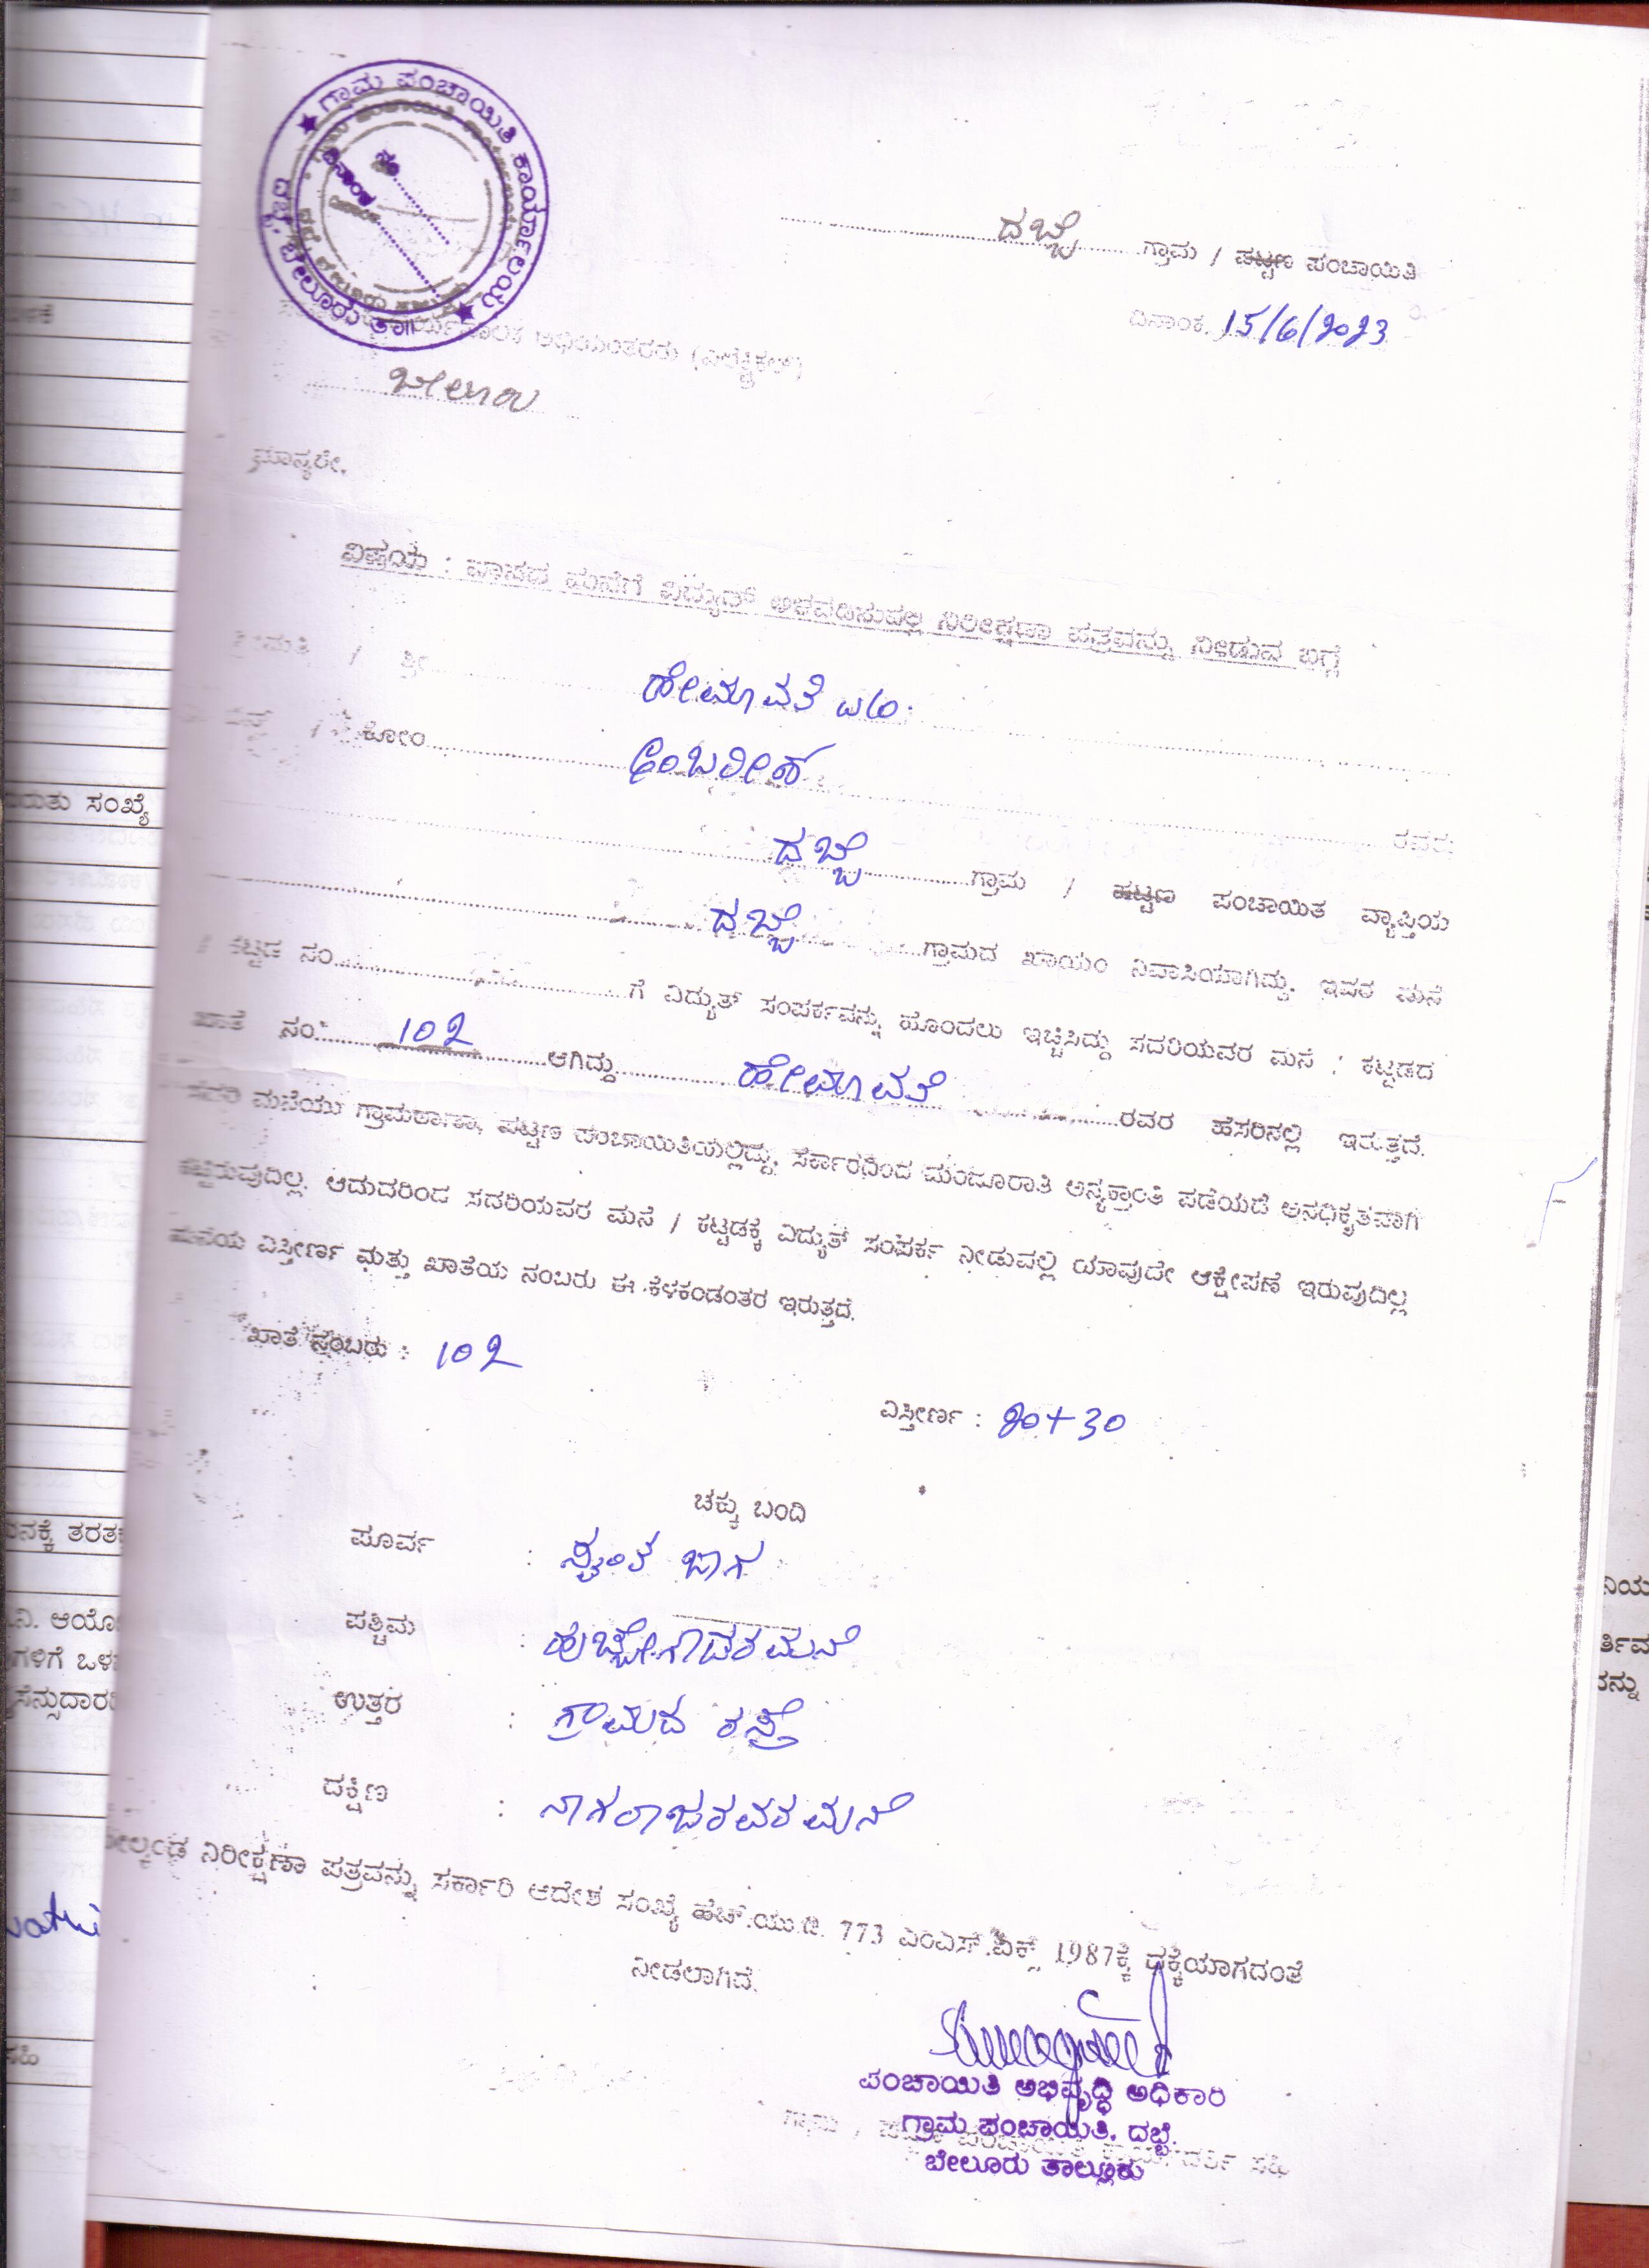 ಗ್ರಾಮ ಪಂಚಾಯಿತಿ ಕಾರ್ಯಾಲಯ
ದಬ್ಬೆ, ಬೇಲೂರು ತಾ||
ನಂ
ದಿನಾಂಕ
ದಬ್ಬೆ ಗ್ರಾಮ / ಪಟ್ಟಣ ಪಂಚಾಯಿತಿ
ದಿನಾಂಕ. 15/6/2023
ಅಭಿಯಂತರರು (ಎಲೆಕ್ಟ್ರಿಕಲ್)
ಬೇಲೂರು
ಮಾನ್ಯರೇ,
ವಿಷಯ : ವಾಸದ ಮನೆಗೆ ವಿದ್ಯುತ್ ಅಳವಡಿಸುವಲ್ಲಿ ನಿರೀಕ್ಷಣಾ ಪತ್ರವನ್ನು ನೀಡುವ ಬಗ್ಗೆ
ಶ್ರೀಮತಿ / ಶ್ರೀ ಹೇಮಾವತಿ
/ ಕೋಂ ಅಂಬರೀಶ್ ರವರು
ದಬ್ಬೆ ಗ್ರಾಮ / ಪಟ್ಟಣ ಪಂಚಾಯಿತ ವ್ಯಾಪ್ತಿಯ
ದಬ್ಬೆ ಗ್ರಾಮದ ಖಾಯಂ ನಿವಾಸಿಯಾಗಿದ್ದು, ಇವರ ಮನೆ
/ ಕಟ್ಟಡ ನಂ ಗೆ ವಿದ್ಯುತ್ ಸಂಪರ್ಕವನ್ನು ಹೊಂದಲು ಇಚ್ಚಿಸಿದ್ದು ಸದರಿಯವರ ಮನೆ : ಕಟ್ಟಡದ
ಖಾತೆ ನಂ. 102 ಆಗಿದ್ದು ಹೇಮಾವತಿ ರವರ ಹೆಸರಿನಲ್ಲಿ ಇರುತ್ತದೆ.
ಸದರಿ ಮನೆಯು ಗ್ರಾಮಠಾಣಾ, ಪಟ್ಟಣ ಪಂಚಾಯಿತಿಯಲ್ಲಿದ್ದು, ಸರ್ಕಾರದಿಂದ ಮಂಜೂರಾತಿ ಅನ್ಯಕ್ರಾಂತಿ ಪಡೆಯದೆ ಅನಧಿಕೃತವಾಗಿ
ಕಟ್ಟಿರುವುದಿಲ್ಲ. ಆದುದರಿಂದ ಸದರಿಯವರ ಮನೆ / ಕಟ್ಟಡಕ್ಕೆ ವಿದ್ಯುತ್ ಸಂಪರ್ಕ ನೀಡುವಲ್ಲಿ ಯಾವುದೇ ಆಕ್ಷೇಪಣೆ ಇರುವುದಿಲ್ಲ
ಮನೆಯ ವಿಸ್ತೀರ್ಣ ಮತ್ತು ಖಾತೆಯ ನಂಬರು ಈ ಕೆಳಕಂಡಂತರ ಇರುತ್ತದೆ.
ಖಾತೆ ನಂಬರು : 102
ವಿಸ್ತೀರ್ಣ : 20+30
ಚಕ್ಕು ಬಂದಿ
ಪೂರ್ವ : ಸ್ವಂತ ಜಾಗ
ಪಶ್ಚಿಮ : ಹುಚ್ಚೇಗೌಡರ ಮನೆ
ಉತ್ತರ : ಗ್ರಾಮದ ರಸ್ತೆ
ದಕ್ಷಿಣ : ನಾಗರಾಜರವರ ಮನೆ
ಮೇಲ್ಕಂಡ ನಿರೀಕ್ಷಣಾ ಪತ್ರವನ್ನು ಸರ್ಕಾರಿ ಆದೇಶ ಸಂಖ್ಯೆ ಹೆಚ್.ಯು.ಡಿ. 773 ಎಂಎಸ್.ಎಕ್ಸ್ 1987ಕ್ಕೆ ಧಕ್ಕೆಯಾಗದಂತೆ
ನೀಡಲಾಗಿದೆ.
ಪಂಚಾಯಿತಿ ಅಭಿವೃದ್ಧಿ ಅಧಿಕಾರಿ
ಗ್ರಾಮ ಪಂಚಾಯಿತಿ, ದಬ್ಬೆ.
ಬೇಲೂರು ತಾಲ್ಲೂಕು